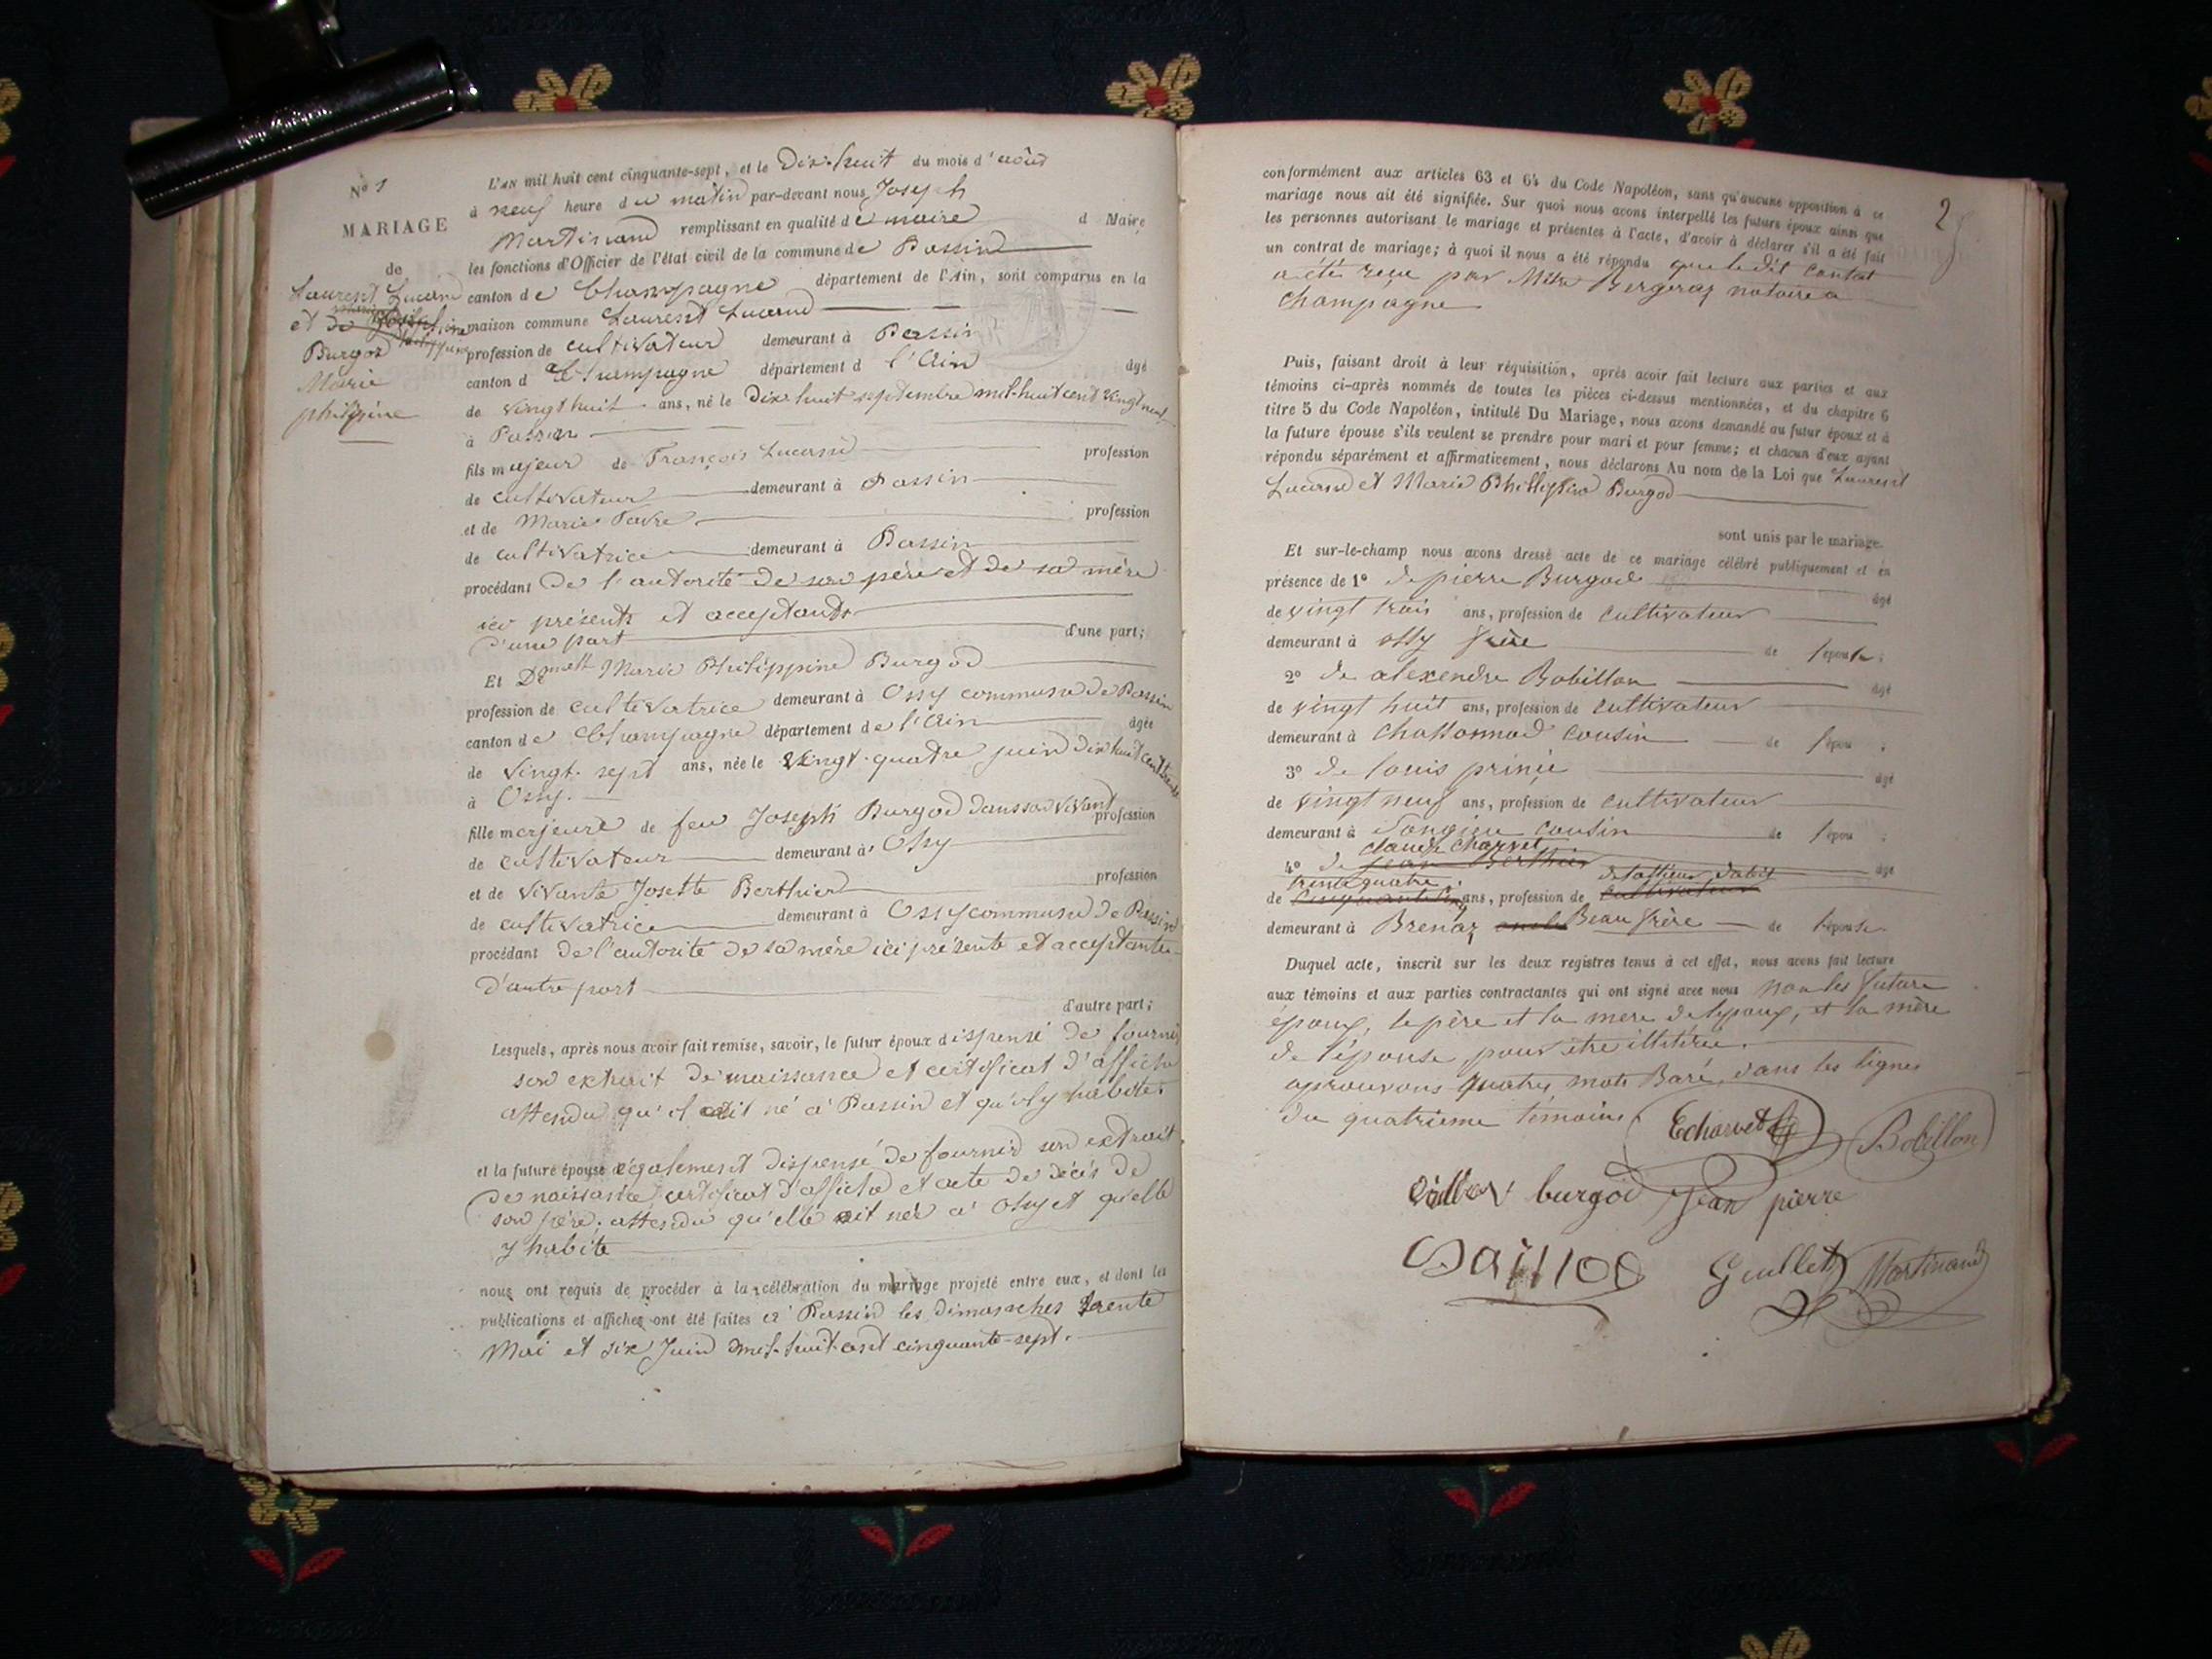 N° 1
MARIAGE
de
Laurent Lucand
et de
Burgod
Marie
philippine
L'AN mil huit cent cinquante-sept, et le Dix-huit du mois d'août
à neuf heure du matin par-devant nous Joseph
Martinand remplissant en qualité de maire d Maire
les fonctions d'Officier de l'état civil de la commune de Passin
canton de Champagne département de l'Ain, sont comparus en la
maison commune Laurent Lucand
profession de cultivateur demeurant à Passin
canton de Champagne département d l'Ain âgé
de vingt huit ans, né le Dix huit septembre mil-huit cent vingt neuf
à Passin
fils majeur de François Lucand profession
de cultivateur demeurant à Passin
et de Marie Favre profession
de cultivatrice demeurant à Passin
procédant De l'autorité de son père et de sa mère
ici présents et acceptants
d'une part d'une part;
Et Dmell Marie Philippine Burgod
profession de cultivatrice demeurant à Ossy commune de Passin
canton de Champagne département de l'Ain âgée
de vingt-sept ans, née le vingt-quatre juin dix huit cent trente
à Ossy.
fille majeure de feu Joseph Burgod dans son vivant profession
de cultivateur demeurant à Ossy
et de vivante Josette Berthier profession
de cultivatrice demeurant à Ossy commune de Passin
procédant de l'autorité de sa mère ici présente et acceptante
D'autre part
d'autre part;
Lesquels, après nous avoir fait remise, savoir, le futur époux dispensé de fournir
son extrait de naissance et certificat d'affiche
attendu qu'il est né à Passin et qu'il y habite.
et la future épouse également dispensé de fournir son extrait
de naissance certificat d'affiche et acte de décès de
son père, attendu qu'elle est née à Ossy et qu'elle
y habite
nous ont requis de procéder à la célébration du mariage projeté entre eux, et dont les
publications et affiches ont été faites à Passin les dimanches trente
Mai et six Juin mil-huit-cent cinquante-sept.
2
conformément aux articles 63 et 64 du Code Napoléon, sans qu'aucune opposition à ce
mariage nous ait été signifiée. Sur quoi nous avons interpellé les futurs époux ainsi que
les personnes autorisant le mariage et présentes à l'acte, d'avoir à déclarer s'il a été fait
un contrat de mariage; à quoi il nous a été répondu que le dit contrat
a été reçu par Mtre Bergeraz notaire à
Champagne
Puis, faisant droit à leur réquisition, après avoir fait lecture aux parties et aux
témoins ci-après nommés de toutes les pièces ci-dessus mentionnées, et du chapitre 6
titre 5 du Code Napoléon, intitulé Du Mariage, nous avons demandé au futur époux et à
la future épouse s'ils veulent se prendre pour mari et pour femme; et chacun d'eux ayant
répondu séparément et affirmativement, nous déclarons Au nom de la Loi que Laurent
Lucand et Marie Philippine Burgod
sont unis par le mariage.
Et sur-le-champ nous avons dressé acte de ce mariage célébré publiquement et en
présence de 1° de pierre Burgod âgé
de vingt trois ans, profession de cultivateur
demeurant à Ossy frère de l'épouse;
2° de alexendre Bobillon âgé
de vingt huit ans, profession de cultivateur
demeurant à Chassonnod cousin de l'épou ;
3° de louis prinié âgé
de vingt neuf ans, profession de cultivateur
demeurant à Songieu cousin de l'épou ;
claude Charvet
4° de jean Berthier âgé
trente quatre
de ans, profession de cultivateur
demeurant à Brenaz oncle Beau frère de l'épouse.
Duquel acte, inscrit sur les deux registres tenus à cet effet, nous avons fait lecture
aux témoins et aux parties contractantes qui ont signé avec nous non les future
époux, le père et la mere de l'epoux, et la mère
de l'épouse pour être illitérée.
aprouvons quatre mots Baré dans les lignes
du quatrième témoins
Echarvet
Bobillon
burgod Jean pierre
Guillet
Martinand